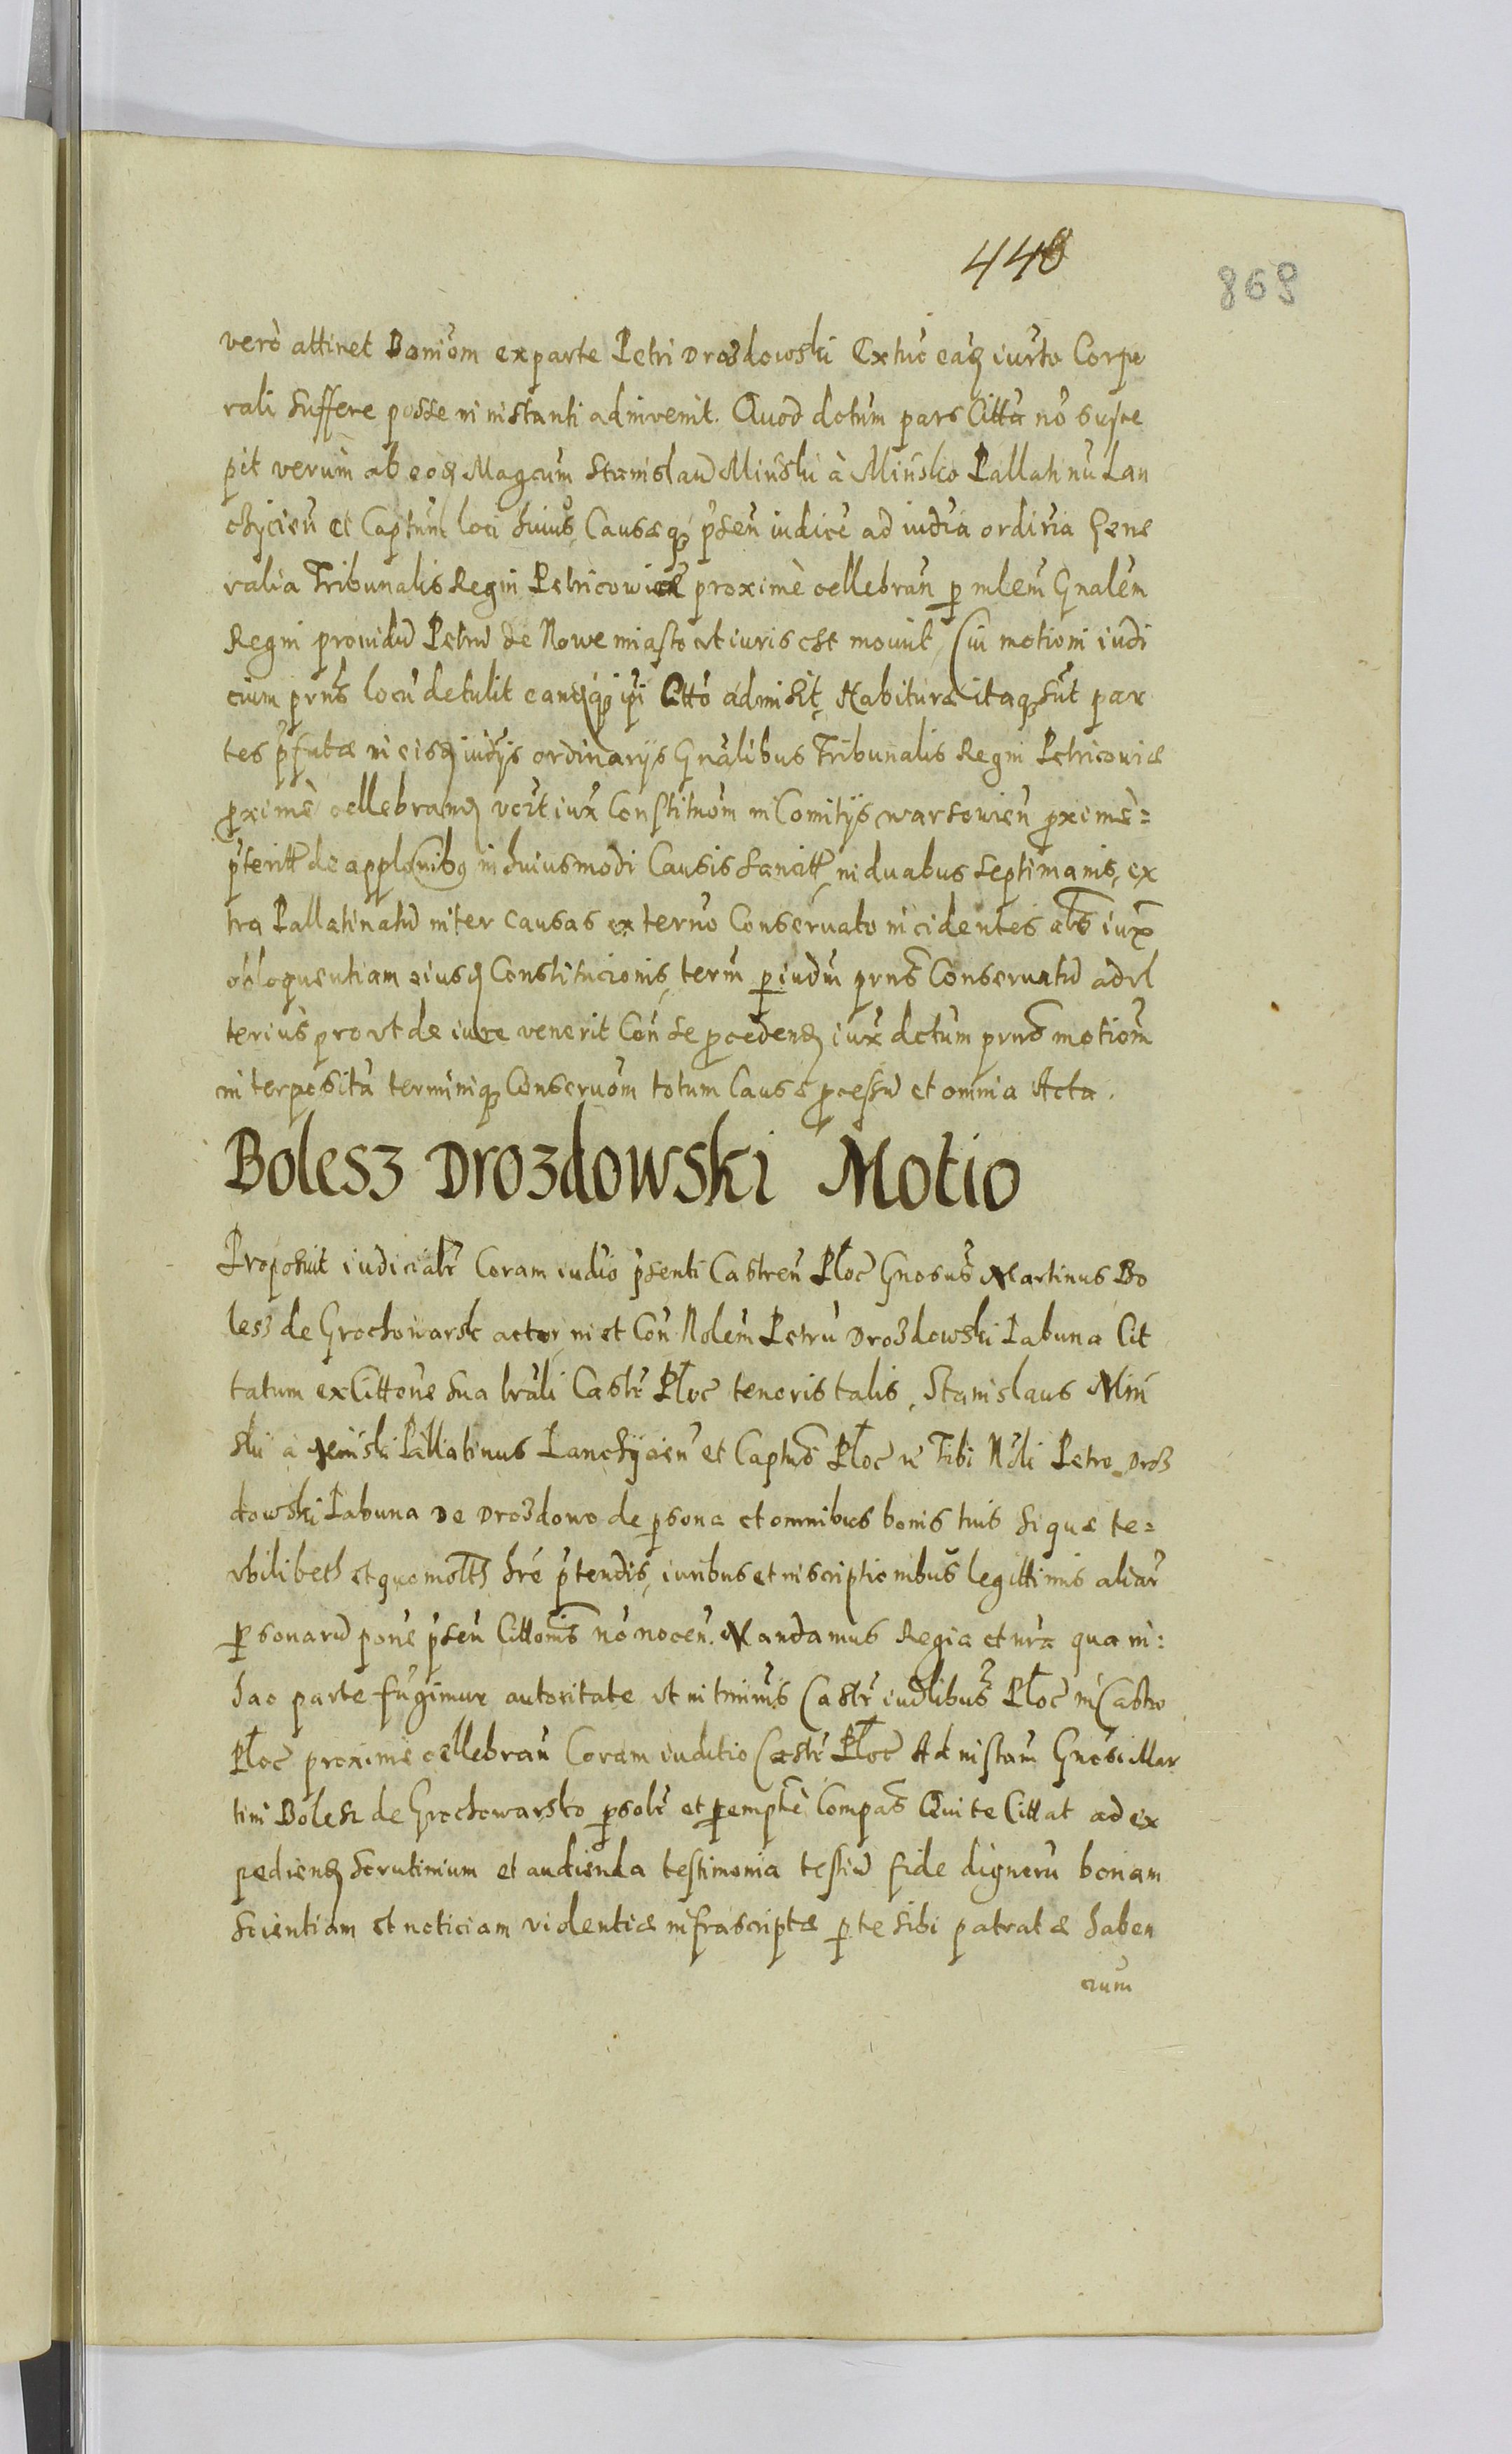 448
869
verò attinet Boniom ex parte Petri Drozdowski Extuc eaʒ iurto Corpo
rali suffere posse in instanti adinvenit. Quod dctum pars Citta nō susce
pit verum ab eoʒ Magcum Stanislaū Minski à Minsko Pallatinū Lan
chicien̄ et Captum loci huius, Causaeqʒ p̄sen̄ iudicē ad iudia ordiria Gene
ralia Tribunalis Regni Petricowien̄ proximè cellebran̄ p̱ mlem̄ Gnalem̄
Regni providū Petrū de Nowe miasto vt iuris est movit, Cui motioni iudi
cium prn̄s locū detulit eamʒqʒ ip̄i Citto admisit, Habiturae itaqʒ sūt par
tes p̄fatae in eisʒ iudijs ordinarijs Gn̄alibus Tribunalis Regni Petricoviae
ꝓximè cellebranʒ vert iux̄ Constituōm in Comitijs warsovien̄ ꝓximè=
p̄teritt de applōnibʒ in huiusmodi Causis sancitt, in duabus septimanis, ex
tra Pallatinatū inter causas ex terūo Conservato incidentes als̄ iux̄
obloquentiam eiusʒ Constitucionis, term̄ p̱ iudm̄ prn̄s Conservatū ad vl
terius prout de iure venerit Con̄ se ꝓcedenʒ iux̄ dctum prn̄s motiom̄
interposita terminiqʒ Conservōm totum Causae ꝓcessū et omnia Acta.
Bolesz Drozdowski Motio
Proposuit iudicialr̄ Coram iudīo p̄senti Castren̄ Ploc̄ Gnosus̄ Martinus Bo
lesz de Grochowarsk actor in et Con̄ Nolem̄ Petrū Drozdowski Labuna Cit
tatum ex Cittone sua lrāli Castr̄ Ploc̄ tenoris talis, Stanislaus Min
ski à Minski Pallatinus Lanchijcien̄ et Captns̄ Ploc̄ ⁊c̄ Tibi Nōli Petro Droz
dowski Labuna de Drozdowo de p̱sona et omnibus bonis tuis si quae te=
vbilibeth et quomōlth hrē p̄tendis, iuribus et inscriptionibus legittimis aliar̄
p̱sonarū pone p̄sen̄ Cittonis̄ nō nocen̄. Mandamus Regia et nr̄a qua in:
hac parte fūgimur autoritate vt in tminis̄ Castr̄ iudlibus̄ Ploc̄ in Castro
Ploc̄ proximè cellebran̄ Coram iuditio Castr̄ Ploc̄ Ad instam̄ Gnosi Mar
tini Bolesz de Grochowarsko p̱solr̄ et p̱emptē Compas̄ Qui te Cittat ad ex
pedienʒ scrutinium et audienda testimonia testiū fide dignorū bonam
scientiam et noticiam violentiae infrascriptae p̱ te sibi patratae haben
cium